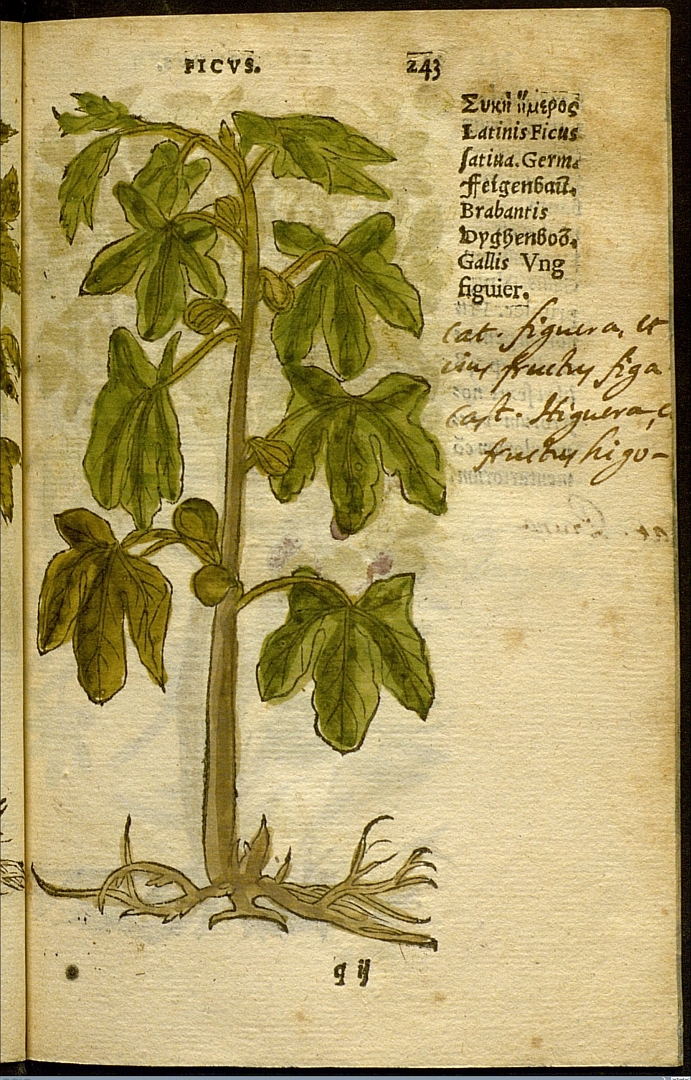 FICVS.
243
Συκῆ ἥμερος
Latinis Ficus
ſatiua. Germ.
Feigenbaũ.
Brabantis
Vyghenboõ.
Gallis Vng
figuier.
cat. figuera, et
eius fructus figa
cast. Higuera,
fructus higo-
q ij